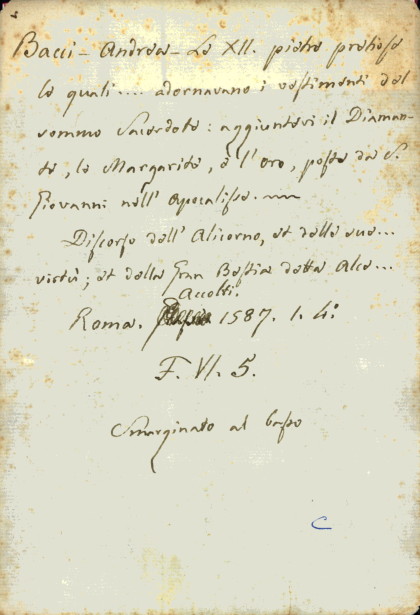 Bacci - Andrea - Le XII. pietre pretiose
le quali .... adornavano i vestimenti del
sommo Sacerdote: aggiuntevi il Diaman-
te, le Margarite, e l'Oro, poste da S.
Giovanni nell' Apocalisse.
Discorso dell' Alicorno, et delle sue...
virtù; et della Gran Bestia detta Alce...
Accolti.
Roma. 1587. 1. 4:
F. VI. 5.
Smarginato al basso
C